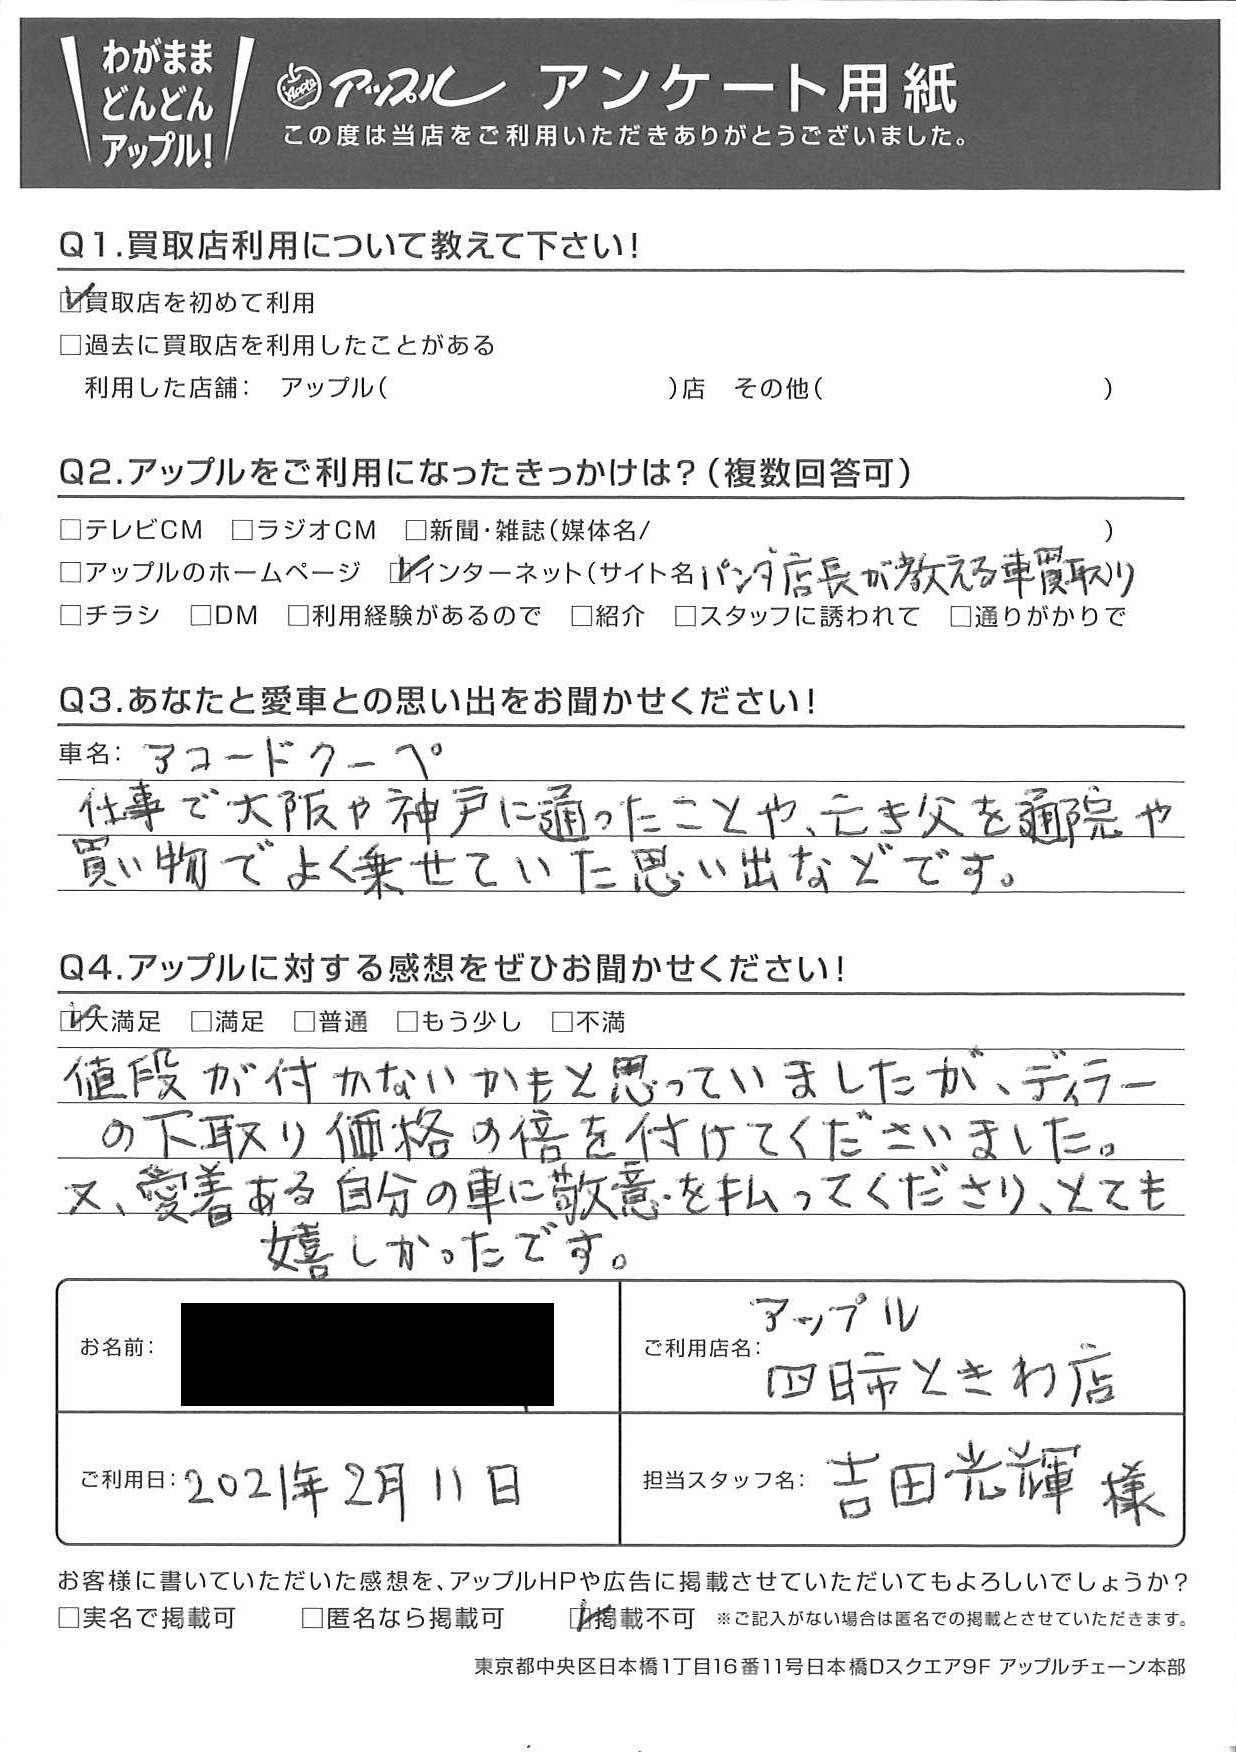 わがまま
どんどん
アップル!
Apple アップル アンケート用紙
この度は当店をご利用いただきありがとうございました。
Q1.買取店利用について教えて下さい!
☑買取店を初めて利用
□過去に買取店を利用したことがある
利用した店舗: アップル( )店 その他( )
Q2.アップルをご利用になったきっかけは?(複数回答可)
□テレビCM □ラジオCM □新聞・雑誌(媒体名/ )
□アップルのホームページ ☑インターネット(サイト名 パンダ店長が教える車買取り
□チラシ □DM □利用経験があるので □紹介 □スタッフに誘われて □通りがかりで
Q3.あなたと愛車との思い出をお聞かせください!
車名: アコードクーペ
仕事で大阪や神戸に通ったことや、亡き父を通院や
買い物でよく乗せていた思い出などです。
Q4.アップルに対する感想をぜひお聞かせください!
☑大満足 □満足 □普通 □もう少し □不満
値段が付かないかもと思っていましたが、ディラー
の下取り価格の倍を付けてくださいました。
又、愛着ある自分の車に敬意を払ってくださり、とても
嬉しかったです。
お名前:
ご利用店名: アップル
四日市ときわ店
ご利用日: 2021年2月11日
担当スタッフ名: 吉田光輝 様
お客様に書いていただいた感想を、アップルHPや広告に掲載させていただいてもよろしいでしょうか?
□実名で掲載可 □匿名なら掲載可 ☑掲載不可 ※ご記入がない場合は匿名での掲載とさせていただきます。
東京都中央区日本橋1丁目16番11号日本橋Dスクエア9F アップルチェーン本部